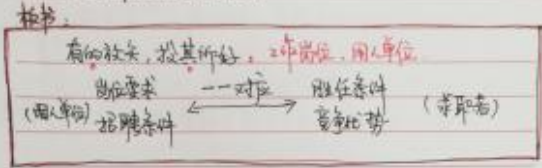 板书:
有的放矢,投其所好。工作岗位,用人单位
岗位要求 一一对应 胜任条件
(用人单位) 招聘条件 ⟷ 竞争优势 (求职者)